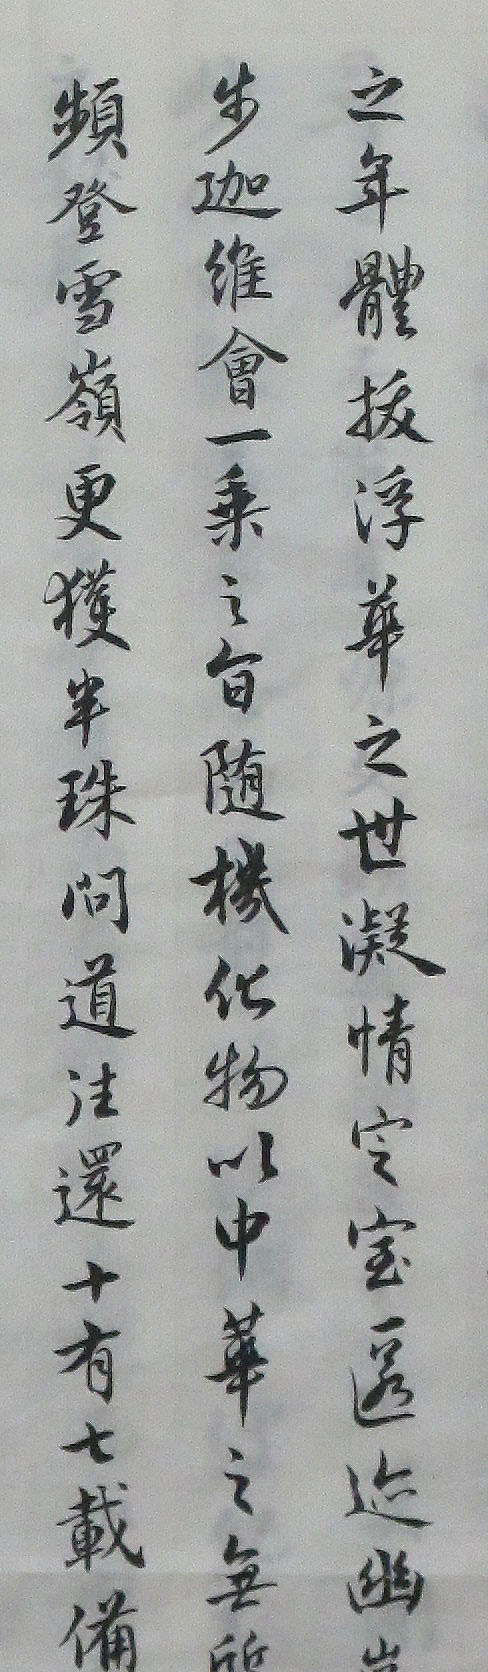 之年體拔浮華之世凝情定室匿迹幽
步迦維會一乘之旨随機化物以中華之無所
頻登雪嶺更獲半珠問道往還十有七載備